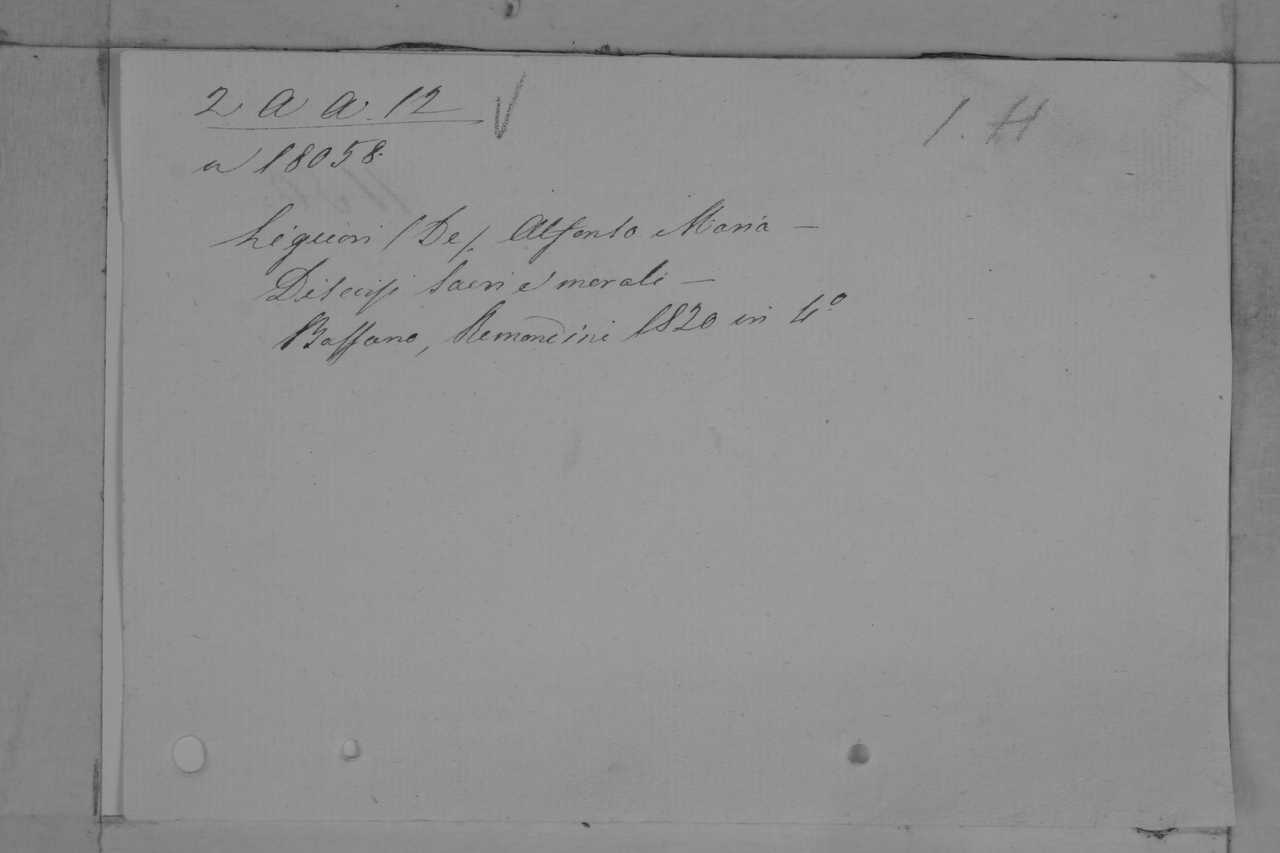 2 A A. 12 V
1. H
n 18058.
Liguori (De). Alfonso Maria -
Discorsi sacri e morali -
Bassano, Remondini 1820 in 4º